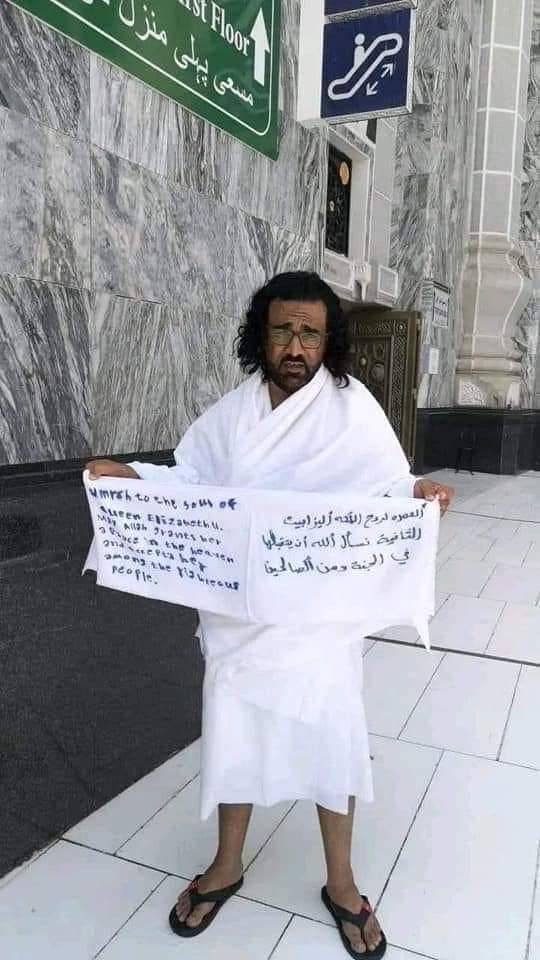 st Floor
مسعی پہلی منزل
Umrah to the soul of
queen Elizabeth II.
May Allah grants her
a place in the heaven
and accepts her
among the righteous
people.
العمره لروح الملكه اليزابيت
الثانية نسأل الله أن يتقبلها
في الجنة ومن الصالحين